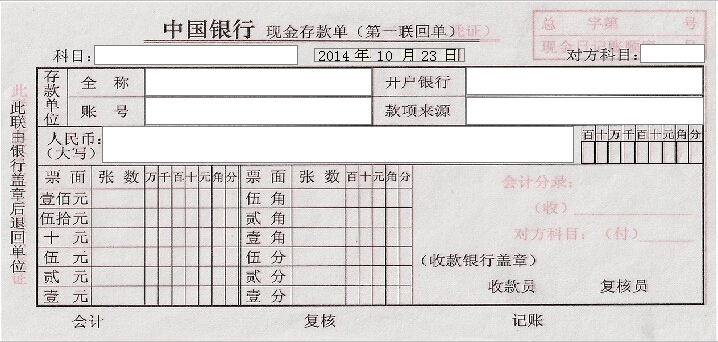 中国银行 现金存款单（第一联回单）凭证）
总 字第 号
现金日记账顺序 号
科目： 2014 年 10 月 23 日 对方科目：
存款单位 全称 开户银行
账号 款项来源
人民币：
（大写） 百十万千百十元角分
票面 张数 万千百十元角分 票面 张数 百十元角分
壹佰元 伍角
伍拾元 贰角
十元 壹角
伍元 伍分
贰元 贰分
壹元 壹分
会计分录：
（收）
对方科目：（付）
（收款银行盖章）
收款员 复核员
会计 复核 记账
此联由银行盖章后退回单位
此 证